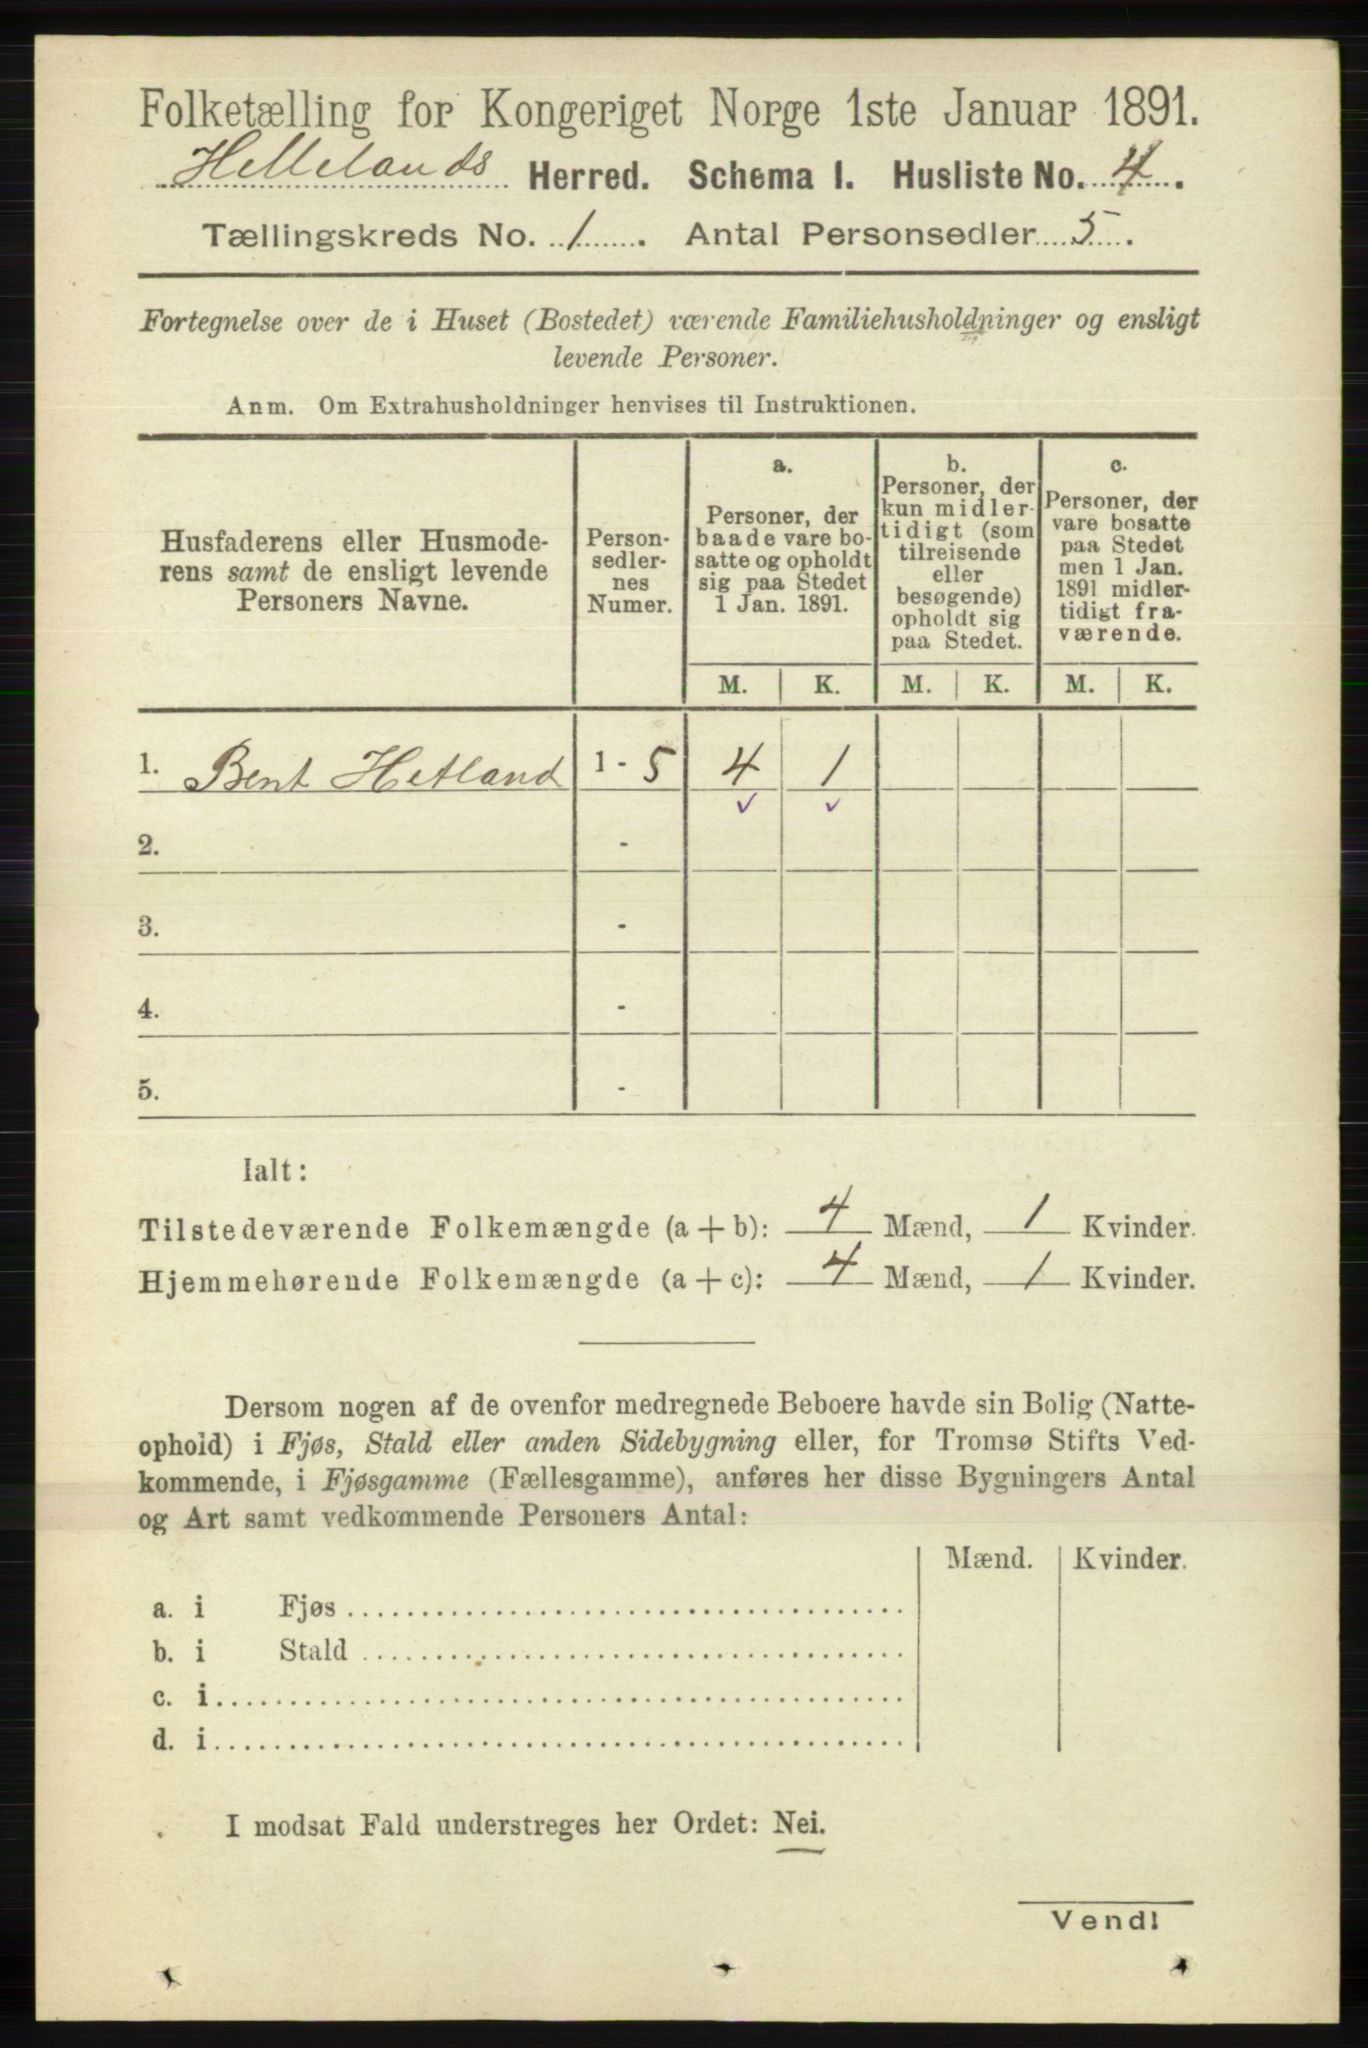 Folketælling for Kongeriget Norge 1ste Januar 1891.
Hellelands Herred. Schema I. Husliste No. 4.
Tællingskreds No. 1. Antal Personsedler 5.
Fortegnelse over de i Huset (Bostedet) værende Familiehusholdninger og ensligt
levende Personer.
Anm. Om Extrahusholdninger henvises til Instruktionen.
Husfaderens eller Husmode-
rens samt de ensligt levende
Personers Navne.
Person-
sedler-
nes
Numer.
a.
Personer, der
baade vare bo-
satte og opholdt
sig paa Stedet
1 Jan. 1891.
b.
Personer, der
kun midler-
tidigt (som
tilreisende
eller
besøgende)
opholdt sig
paa Stedet.
c.
Personer, der
vare bosatte
paa Stedet
men 1 Jan.
1891 midler-
tidigt fra-
værende.
M. K. M. K. M. K.
1. Bent Hetland 1 - 5 4 1
2. -
3. -
4. -
5. -
Ialt:
Tilstedeværende Folkemængde (a + b): 4 Mænd, 1 Kvinder.
Hjemmehørende Folkemængde (a + c): 4 Mænd, 1 Kvinder.
Dersom nogen af de ovenfor medregnede Beboere havde sin Bolig (Natte-
ophold) i Fjøs, Stald eller anden Sidebygning eller, for Tromsø Stifts Ved-
kommende, i Fjøsgamme (Fællesgamme), anføres her disse Bygningers Antal
og Art samt vedkommende Personers Antal:
Mænd. Kvinder.
a. i Fjøs
b. i Stald
c. i
d. i
I modsat Fald understreges her Ordet: Nei.
Vend!